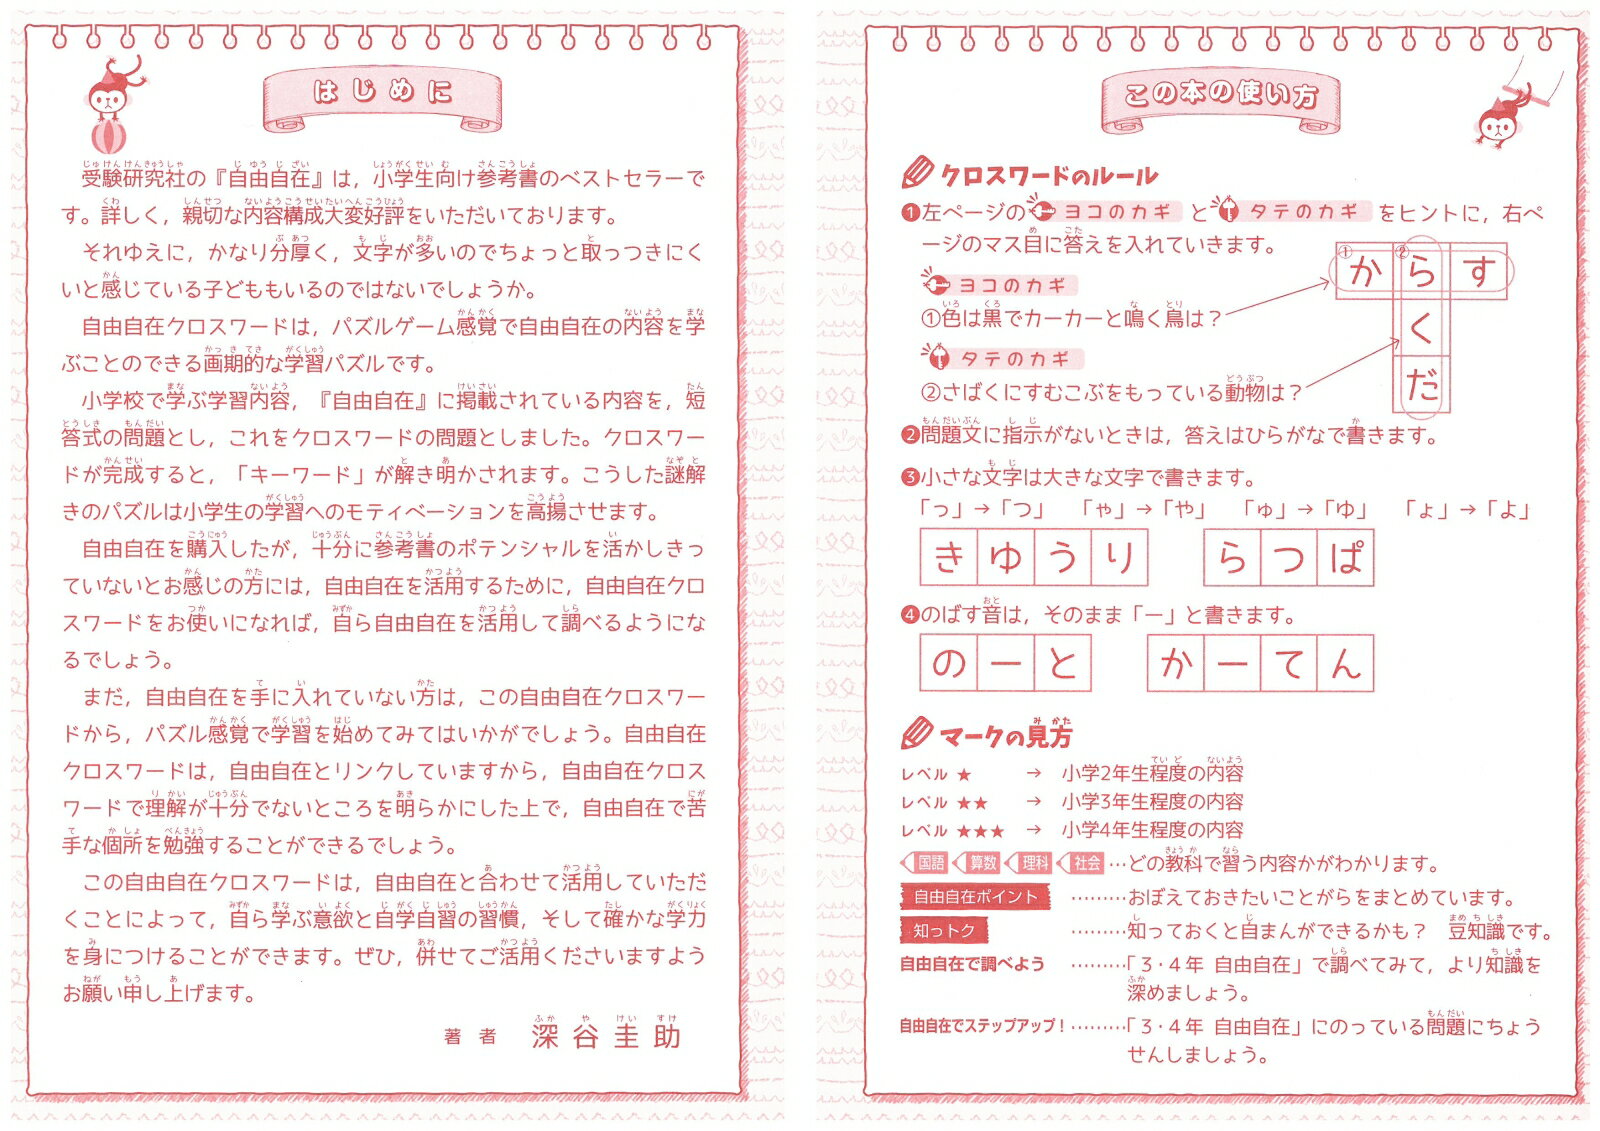 はじめに
受験研究社の『自由自在』は，小学生向け参考書のベストセラーで
す。詳しく，親切な内容構成大変好評をいただいております。
それゆえに，かなり分厚く，文字が多いのでちょっと取っつきにく
いと感じている子どももいるのではないでしょうか。
自由自在クロスワードは，パズルゲーム感覚で自由自在の内容を学
ぶことのできる画期的な学習パズルです。
小学校で学ぶ学習内容，『自由自在』に掲載されている内容を，短
答式の問題とし，これをクロスワードの問題としました。クロスワー
ドが完成すると，「キーワード」が解き明かされます。こうした謎解
きのパズルは小学生の学習へのモティベーションを高揚させます。
自由自在を購入したが，十分に参考書のポテンシャルを活かしきっ
ていないとお感じの方には，自由自在を活用するために，自由自在クロ
スワードをお使いになれば，自ら自由自在を活用して調べるようにな
るでしょう。
まだ，自由自在を手に入れていない方は，この自由自在クロスワー
ドから，パズル感覚で学習を始めてみてはいかがでしょう。自由自在
クロスワードは，自由自在とリンクしていますから，自由自在クロス
ワードで理解が十分でないところを明らかにした上で，自由自在で苦
手な個所を勉強することができるでしょう。
この自由自在クロスワードは，自由自在と合わせて活用していただ
くことによって，自ら学ぶ意欲と自学自習の習慣，そして確かな学力
を身につけることができます。ぜひ，併せてご活用くださいますよう
お願い申し上げます。
著者 深谷圭助
この本の使い方
クロスワードのルール
❶左ページの ヨコのカギ と タテのカギ をヒントに，右ペ
ージのマス目に答えを入れていきます。
ヨコのカギ
①色は黒でカーカーと鳴く鳥は？
タテのカギ
②さばくにすむこぶをもっている動物は？
① か ② ら す
く
だ
❷問題文に指示がないときは，答えはひらがなで書きます。
❸小さな文字は大きな文字で書きます。
「っ」→「つ」 「ゃ」→「や」 「ゅ」→「ゆ」 「ょ」→「よ」
きゆうり らつぱ
❹のばす音は，そのまま「ー」と書きます。
のーと かーてん
マークの見方
レベル ★ → 小学2年生程度の内容
レベル ★★ → 小学3年生程度の内容
レベル ★★★ → 小学4年生程度の内容
国語 算数 理科 社会 …どの教科で習う内容かがわかります。
自由自在ポイント ………おぼえておきたいことがらをまとめています。
知っトク ………知っておくと自まんができるかも？ 豆知識です。
自由自在で調べよう ………「３・４年 自由自在」で調べてみて，より知識を
深めましょう。
自由自在でステップアップ！………「３・４年 自由自在」にのっている問題にちょう
せんしましょう。